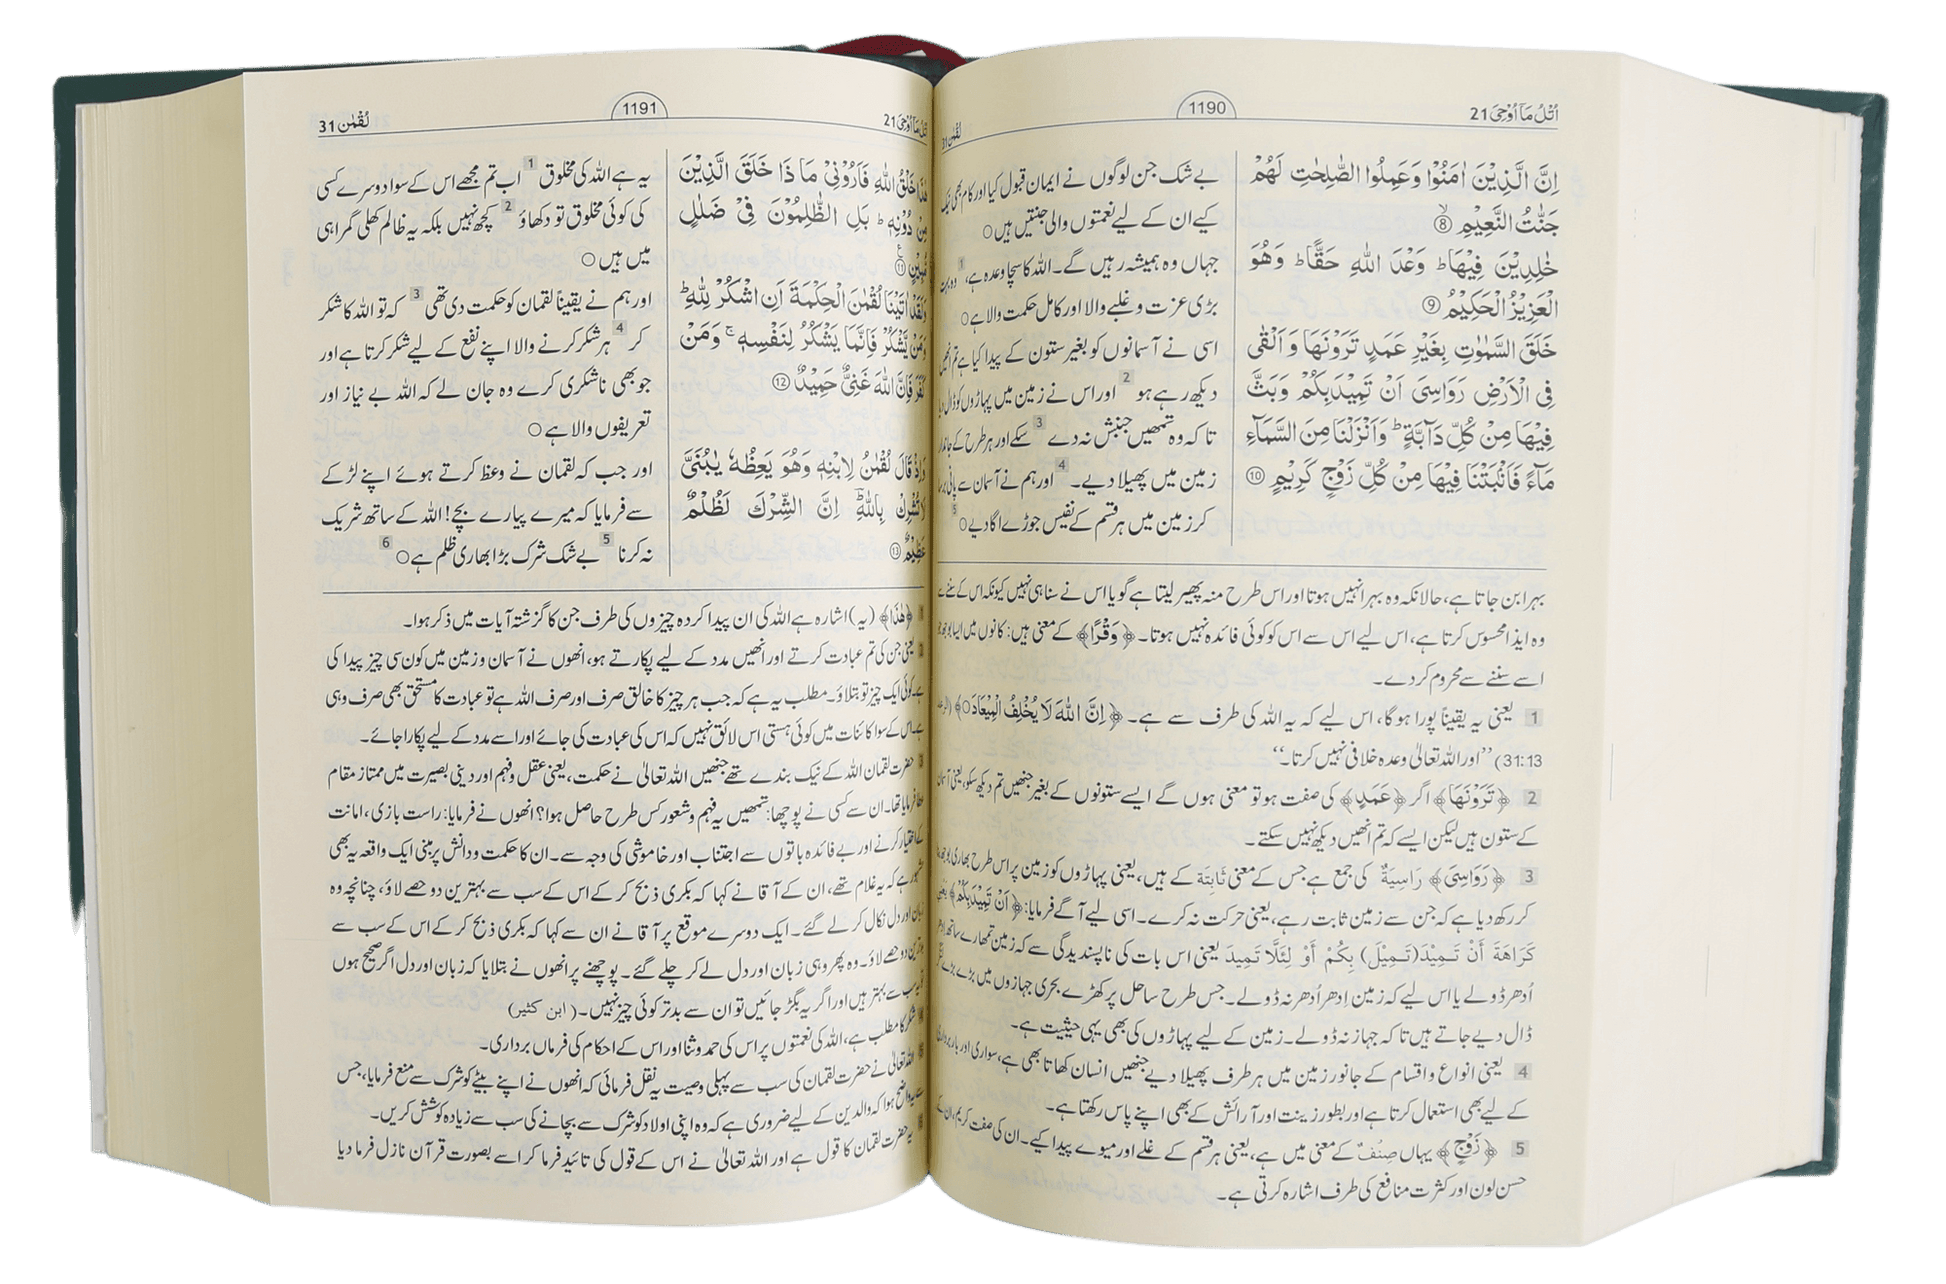 اُتْلُ مَآ اُوْحِیَ 21
1190
لُقْمٰن 31
اِنَّ الَّذِيْنَ اٰمَنُوْا وَعَمِلُوا الصّٰلِحٰتِ لَهُمْ
جَنّٰتُ النَّعِيْمِ ۙ 8
خٰلِدِيْنَ فِيْهَا ؕ وَعْدَ اللّٰهِ حَقًّا ؕ وَهُوَ
الْعَزِيْزُ الْحَكِيْمُ 9
خَلَقَ السَّمٰوٰتِ بِغَيْرِ عَمَدٍ تَرَوْنَهَا وَ اَلْقٰى
فِى الْاَرْضِ رَوَاسِىَ اَنْ تَمِيْدَ بِكُمْ وَ بَثَّ
فِيْهَا مِنْ كُلِّ دَآبَّةٍ ؕ وَاَنْزَلْنَا مِنَ السَّمَآءِ
مَآءً فَاَنْۢبَتْنَا فِيْهَا مِنْ كُلِّ زَوْجٍ كَرِيْمٍ 10
بے شک جن لوگوں نے ایمان قبول کیا اور کام بھی نیک
کیے ان کے لیے نعمتوں والی جنتیں ہیں○
جہاں وہ ہمیشہ رہیں گے۔ اللہ کا سچا وعدہ ہے، 1 وہ بہت
بڑی عزت و غلبے والا اور کامل حکمت والا ہے○
اسی نے آسمانوں کو بغیر ستون کے پیدا کیا ہے تم انھیں
دیکھ رہے ہو 2 اور اس نے زمین میں پہاڑوں کو ڈال دیا
تا کہ وہ تمھیں جنبش نہ دے 3 سکے اور ہر طرح کے جاندار
زمین میں پھیلا دیے۔ 4 اور ہم نے آسمان سے پانی برسا
کر زمین میں ہر قسم کے نفیس جوڑے اگا دیے○ 5
بہرا بن جاتا ہے، حالانکہ وہ بہرا نہیں ہوتا اور اس طرح منہ پھیر لیتا ہے گویا اس نے سنا ہی نہیں کیونکہ اس کے سننے سے
وہ ایذا محسوس کرتا ہے، اس لیے اس سے اس کو کوئی فائدہ نہیں ہوتا۔ ﴿وَقْرًا﴾ کے معنی ہیں: کانوں میں ایسا بوجھ جو
اسے سننے سے محروم کر دے۔
1 یعنی یہ یقیناً پورا ہوگا، اس لیے کہ یہ اللہ کی طرف سے ہے۔ ﴿اِنَّ اللّٰهَ لَا يُخْلِفُ الْمِيْعَادَ○﴾ (الرعد
31:13) ’’اور اللہ تعالیٰ وعدہ خلافی نہیں کرتا۔‘‘
2 ﴿تَرَوْنَهَا﴾ اگر ﴿عَمَدٍ﴾ کی صفت ہو تو معنی ہوں گے ایسے ستونوں کے بغیر جنھیں تم دیکھ سکو، یعنی آسمان
کے ستون ہیں لیکن ایسے کہ تم انھیں دیکھ نہیں سکتے۔
3 ﴿رَوَاسِىَ﴾ رَاسِيَةٌ کی جمع ہے جس کے معنی ثَابِتَة کے ہیں، یعنی پہاڑوں کو زمین پر اس طرح بھاری بوجھ بنا
کر رکھ دیا ہے کہ جن سے زمین ثابت رہے، یعنی حرکت نہ کرے۔ اسی لیے آگے فرمایا: ﴿اَنْ تَمِيْدَ بِكُمْ﴾ یعنی
كَرَاهَةَ أَنْ تَمِيْدَ (تَمِيْلَ) بِكُمْ أَوْ لِئَلَّا تَمِيدَ یعنی اس بات کی ناپسندیدگی سے کہ زمین تمھارے ساتھ اِدھر
اُدھر ڈولے یا اس لیے کہ زمین اِدھر اُدھر نہ ڈولے۔ جس طرح ساحل پر کھڑے بحری جہازوں میں بڑے بڑے لنگر
ڈال دیے جاتے ہیں تا کہ جہاز نہ ڈولے۔ زمین کے لیے پہاڑوں کی بھی یہی حیثیت ہے۔
4 یعنی انواع و اقسام کے جانور زمین میں ہر طرف پھیلا دیے جنھیں انسان کھاتا بھی ہے، سواری اور باربرداری
کے لیے بھی استعمال کرتا ہے اور بطور زینت اور آرائش کے بھی اپنے پاس رکھتا ہے۔
5 ﴿زَوْجٍ﴾ یہاں صِنْفٌ کے معنی میں ہے، یعنی ہر قسم کے غلے اور میوے پیدا کیے۔ ان کی صفت کریم، ان کے
حسن لون اور کثرت منافع کی طرف اشارہ کرتی ہے۔
اُتْلُ مَآ اُوْحِیَ 21
1191
لُقْمٰن 31
هٰذَا خَلْقُ اللّٰهِ فَاَرُوْنِىْ مَا ذَا خَلَقَ الَّذِيْنَ
مِنْ دُوْنِهٖ ؕ بَلِ الظّٰلِمُوْنَ فِىْ ضَلٰلٍ
مُّبِيْنٍ ع 11
وَلَقَدْ اٰتَيْنَا لُقْمٰنَ الْحِكْمَةَ اَنِ اشْكُرْ لِلّٰهِ ؕ
وَمَنْ يَّشْكُرْ فَاِنَّمَا يَشْكُرُ لِنَفْسِهٖ ۚ وَمَنْ
كَفَرَ فَاِنَّ اللّٰهَ غَنِىٌّ حَمِيْدٌ 12
وَاِذْ قَالَ لُقْمٰنُ لِابْنِهٖ وَهُوَ يَعِظُهٗ يٰبُنَىَّ
لَا تُشْرِكْ بِاللّٰهِ ؔؕ اِنَّ الشِّرْكَ لَظُلْمٌ
عَظِيْمٌ 13
یہ ہے اللہ کی مخلوق 1 اب تم مجھے اس کے سوا دوسرے کسی
کی کوئی مخلوق تو دکھاؤ 2 کچھ نہیں بلکہ یہ ظالم کھلی گمراہی
میں ہیں○
اور ہم نے یقیناً لقمان کو حکمت دی تھی 3 کہ تو اللہ کا شکر
کر 4 ہر شکر کرنے والا اپنے نفع کے لیے شکر کرتا ہے اور
جو بھی ناشکری کرے وہ جان لے کہ اللہ بے نیاز اور
تعریفوں والا ہے○
اور جب کہ لقمان نے وعظ کرتے ہوئے اپنے لڑکے
سے فرمایا کہ میرے پیارے بچے! اللہ کے ساتھ شریک
نہ کرنا 5 بے شک شرک بڑا بھاری ظلم ہے○ 6
1 ﴿هٰذَا﴾ (یہ) اشارہ ہے اللہ کی ان پیدا کردہ چیزوں کی طرف جن کا گزشتہ آیات میں ذکر ہوا۔
2 یعنی جن کی تم عبادت کرتے اور انھیں مدد کے لیے پکارتے ہو، انھوں نے آسمان و زمین میں کون سی چیز پیدا کی
ہے۔ کوئی ایک چیز تو بتلاؤ۔ مطلب یہ ہے کہ جب ہر چیز کا خالق صرف اور صرف اللہ ہے تو عبادت کا مستحق بھی صرف وہی
ہے۔ اس کے سوا کائنات میں کوئی ہستی اس لائق نہیں کہ اس کی عبادت کی جائے اور اسے مدد کے لیے پکارا جائے۔
3 حضرت لقمان اللہ کے نیک بندے تھے جنھیں اللہ تعالیٰ نے حکمت، یعنی عقل و فہم اور دینی بصیرت میں ممتاز مقام
عطا فرمایا تھا۔ ان سے کسی نے پوچھا: تمھیں یہ فہم و شعور کس طرح حاصل ہوا؟ انھوں نے فرمایا: راست بازی، امانت
کے اختیار کرنے اور بے فائدہ باتوں سے اجتناب اور خاموشی کی وجہ سے۔ ان کا حکمت و دانش پر مبنی ایک واقعہ یہ بھی
مشہور ہے کہ یہ غلام تھے، ان کے آقا نے کہا کہ بکری ذبح کر کے اس کے سب سے بہترین دو حصے لاؤ، چنانچہ وہ
زبان اور دل نکال کر لے گئے۔ ایک دوسرے موقع پر آقا نے ان سے کہا کہ بکری ذبح کر کے اس کے سب سے
بدترین دو حصے لاؤ۔ وہ پھر وہی زبان اور دل لے کر چلے گئے۔ پوچھنے پر انھوں نے بتلایا کہ زبان اور دل اگر صحیح ہوں
تو یہ سب سے بہتر ہیں اور اگر یہ بگڑ جائیں تو ان سے بدتر کوئی چیز نہیں۔ (ابن کثیر)
4 شکر کا مطلب ہے، اللہ کی نعمتوں پر اس کی حمد و ثنا اور اس کے احکام کی فرماں برداری۔
5 اللہ تعالیٰ نے حضرت لقمان کی سب سے پہلی وصیت یہ نقل فرمائی کہ انھوں نے اپنے بیٹے کو شرک سے منع فرمایا، جس
سے یہ واضح ہوا کہ والدین کے لیے ضروری ہے کہ وہ اپنی اولاد کو شرک سے بچانے کی سب سے زیادہ کوشش کریں۔
6 یہ حضرت لقمان کا قول ہے اور اللہ تعالیٰ نے اس کے قول کی تائید فرما کر اسے بصورت قرآن نازل فرما دیا